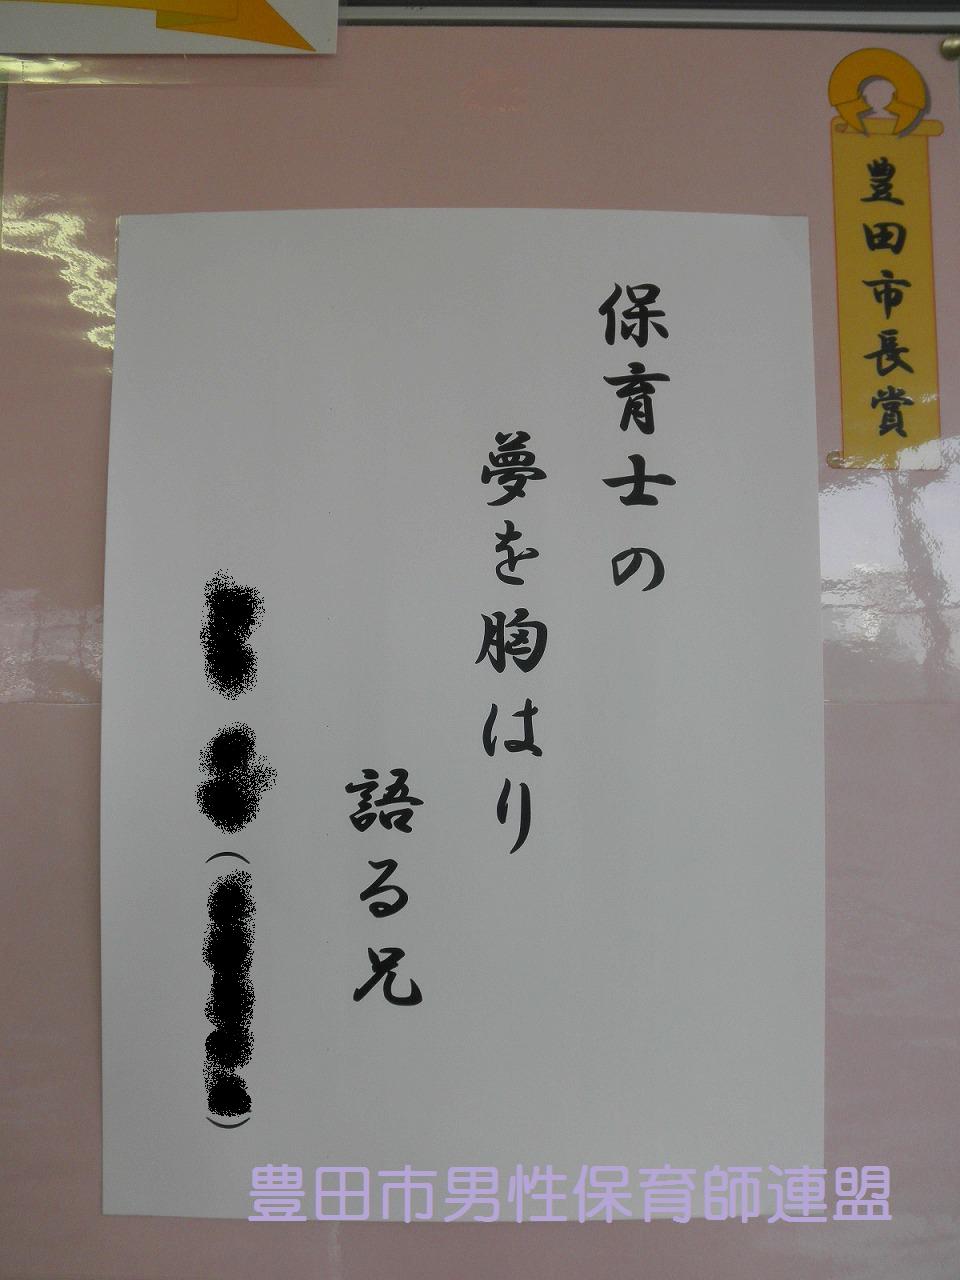 豊田市長賞
保育士の
夢を胸はり
語る兄
豊田市男性保育師連盟